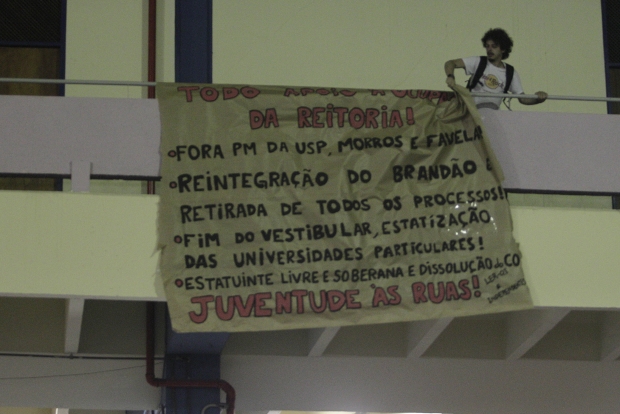 TODO APOIO A
DA REITORIA!
FORA PM DA USP, MORROS E FAVELA
REINTEGRAÇÃO DO BRANDÃO E
RETIRADA DE TODOS OS PROCESSOS!
FIM DO VESTIBULAR, ESTATIZAÇÃO
DAS UNIVERSIDADES PARTICULARES!
ESTATUINTE LIVRE E SOBERANA E DISSOLUÇÃO do CO
JUVENTUDE ÀS RUAS!
LER-QI